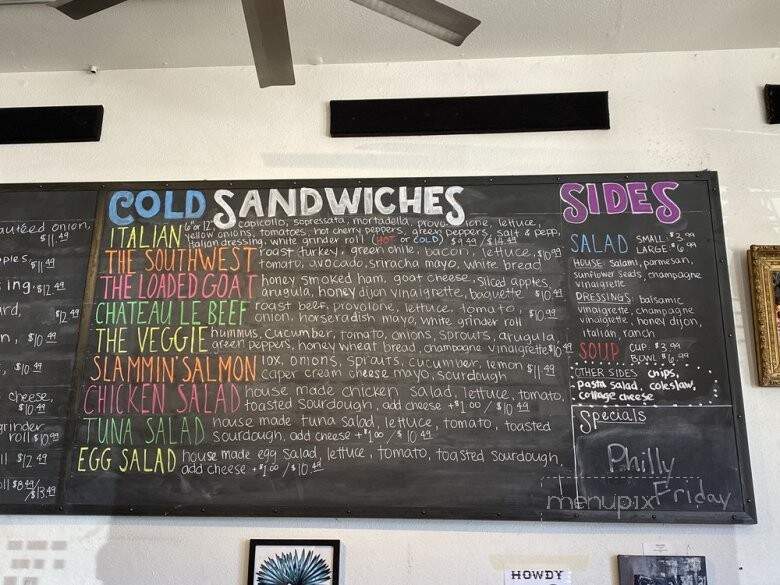 auteed onion,
$11.49
ples,
$11.49
ing. $12.49
ard,
$12.49
n, $10.49
, $10.49
cheese,
$10.49
grinder
roll $10.99
ll $12.49
oll $8.49/
$13.49
COLD SANDWICHES
ITALIAN 6" or 12" capicollo, sopressata, mortadella, provolone, lettuce,
yellow onions, tomatoes, hot cherry peppers, green peppers, salt & pepp,
Italian dressing, white grinder roll (HOT or COLD) $9.49 / $14.49
THE SOUTHWEST roast turkey, green chile, bacon, lettuce, $10.99
tomato, avocado, sriracha mayo, white bread
THE LOADED GOAT honey smoked ham, goat cheese, sliced apples,
arugula, honey dijon vinaigrette, baguette $10.49
CHATEAU LE BEEF roast beef, provolone, lettuce, tomato,
onion, horseradish mayo, white grinder roll $10.99
THE VEGGIE hummus, cucumber, tomato, onions, sprouts, arugula,
green peppers, honey wheat bread, champagne vinaigrette $10.49
SLAMMIN' SALMON lox, onions, sprouts, cucumber, lemon
caper cream cheese mayo, sourdough $11.49
CHICKEN SALAD house made chicken salad, lettuce, tomato,
toasted sourdough, add cheese +$1.00 / $10.49
TUNA SALAD house made tuna salad, lettuce, tomato, toasted
sourdough, add cheese +$1.00 / $10.49
EGG SALAD house made egg salad, lettuce, tomato, toasted sourdough,
add cheese +$1.00 / $10.49
SIDES
SALAD SMALL $3.99
LARGE $6.99
HOUSE: salami, parmesan,
sunflower seeds, champagne
vinaigrette
DRESSINGS: balsamic
vinaigrette, champagne
vinaigrette, honey dijon,
italian, ranch
SOUP CUP $3.99
BOWL $6.99
OTHER SIDES chips,
pasta salad, coleslaw,
cottage cheese
Specials
Philly
Friday
menupix
HOWDY